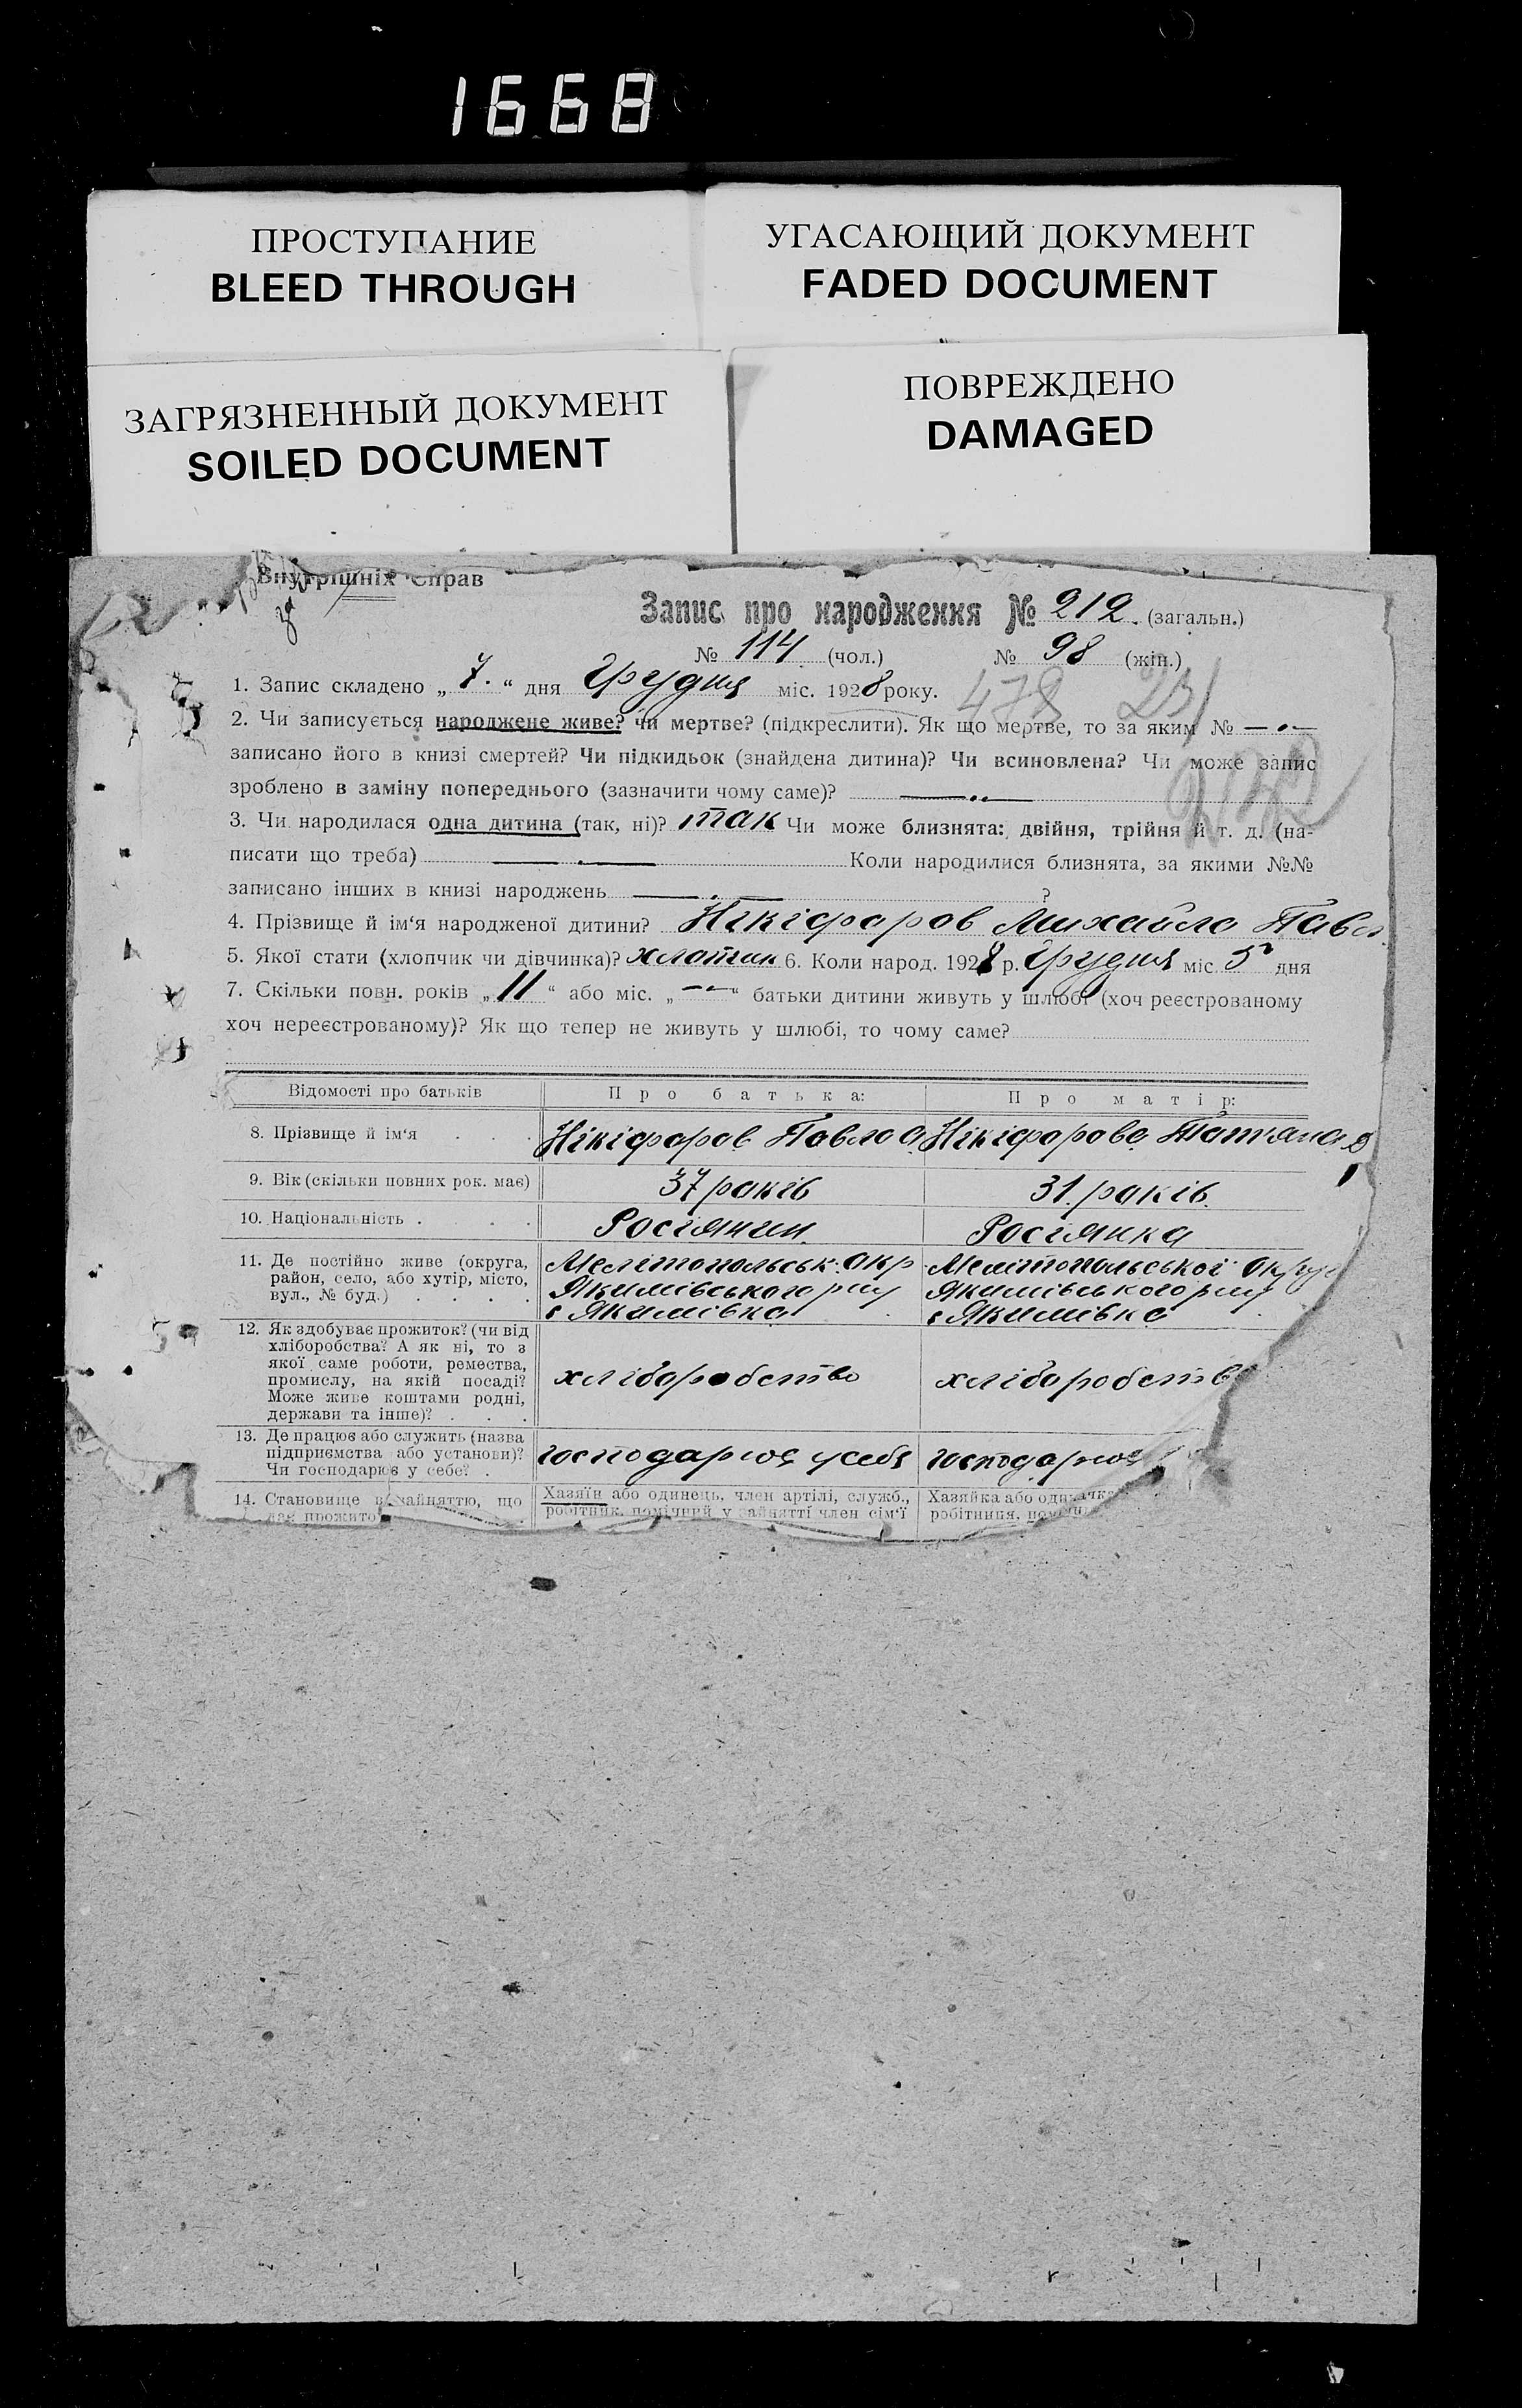 1668
ПРОСТУПАНИЕ
BLEED THROUGH
УГАСАЮЩИЙ ДОКУМЕНТ
FADED DOCUMENT
ЗАГРЯЗНЕННЫЙ ДОКУМЕНТ
SOILED DOCUMENT
ПОВРЕЖДЕНО
DAMAGED
Внутрішніх Справ
Запис про народження № 212. (загальн.)
№ 114. (чол.) № 98 (жін.)
1. Запис складено „ 7. “ дня Грудня міс. 1928 року. 478 231
2. Чи записується народжене живе? чи мертве? (підкреслити). Як що мертве, то за яким №
записано його в книзі смертей? Чи підкидьок (знайдена дитина)? Чи всиновлена? Чи може запис
зроблено в заміну попереднього (зазначити чому саме)? 212
3. Чи народилася одна дитина (так, ні)? так Чи може близнята: двійня, трійня й т. д. (на-
писати що треба) Коли народилися близнята, за якими №№
записано інших в книзі народжень ?
4. Прізвище й ім‘я народженої дитини? Нікіфоров Михайло Павл
5. Якої стати (хлопчик чи дівчинка)? хлопчик 6. Коли народ. 1928 р. Грудня міс. 5 дня
7. Скільки повн. років „ 11 “ або міс. „ “ батьки дитини живуть у шлюбі (хоч реєстрованому
хоч нереєстрованому)? Як що тепер не живуть у шлюбі, то чому саме?
Відомості про батьків
Про батька:
Про матір:
8. Прізвище й ім‘я
Нікіфоров Павло О
Нікіфорова Татьяна Д
9. Вік (скільки повних рок. має)
37 років
31. років.
10. Національність
Росіянин.
Росіянка
11. Де постійно живе (округа,
район, село, або хутір, місто,
вул., № буд.)
Мелітопольськ. окр
Якимівського р-ну
с Якимівка
Мелітопольської Округи
Якимівського р-ну
с Якимівка
12. Як здобуває прожиток? (чи від
хліборобства? А як ні, то з
якої саме роботи, ремества,
промислу, на якій посаді?
Може живе коштами родні,
держави та інше)?
хліборобство
хліборобство
13. Де працює або служить (назва
підприємства або установи)?
Чи господарює у себе?
господарює у себе
господарює
14. Становище в зайняттю, що
дає прожито
Хазяїн або одинець, член артілі, служб.,
робітник, помічний у зайнятті член сім‘ї
Хазяйка або одиначка
робітниця,